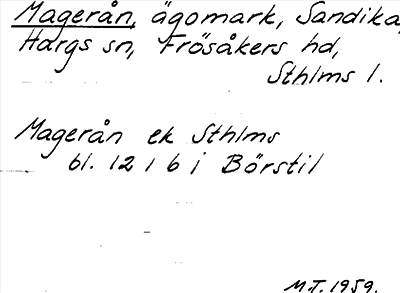 Magerån, ägomark, Sandika,
Hargs sn, Frösåkers hd,
Sthlms l.
Magerån ek Sthlms
bl. 12 1 b i Börstil
M.T. 1959.